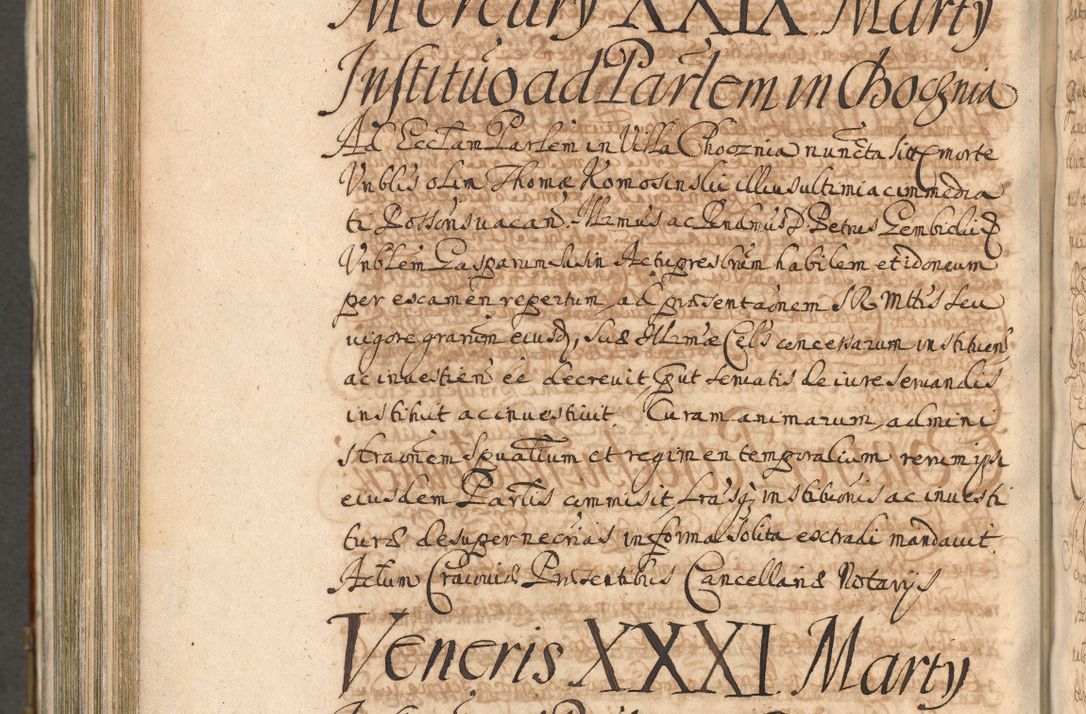 Mercury XXIX Marty
Institũo ad Parlem in Chocznia
Ad Ecclam Parlem in Villa Chocznia nuncta sit morte
Vnblis olim Thomæ Romosinskii illius ultimi ac immedia
ti Possons vacan. Illmus ac Rndmus D. Petrus Gembicki
Vnblem Gasparum Actu presbrum habilem et idoneum
per examen repertum, ad præsentaonem S R Mttis seu
vigore gratiarum eiusd, Suæ Illmæ Cels concessarum instituen
ac investien ee decrevit, put servatis de iure servandis
instituit ac investivit. Curam animarum, admini
straonem Spualium et regimen temporalium rerum ipsi
eiusdem Parlis commisit, Lrasq, institũonis ac investi
turæ desuper necrias in forma solita extradi mandavit.
Actum Cracoviæ Præsentibus Cancellariæ Notarijs
Veneris XXXI Marty